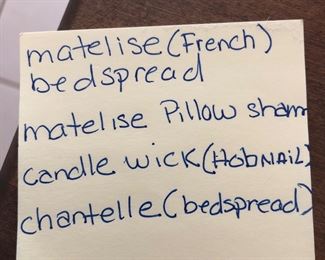 matelise (French)
bedspread
matelise Pillow sham
candle wick (HObNAiL)
chantelle (bedspread)